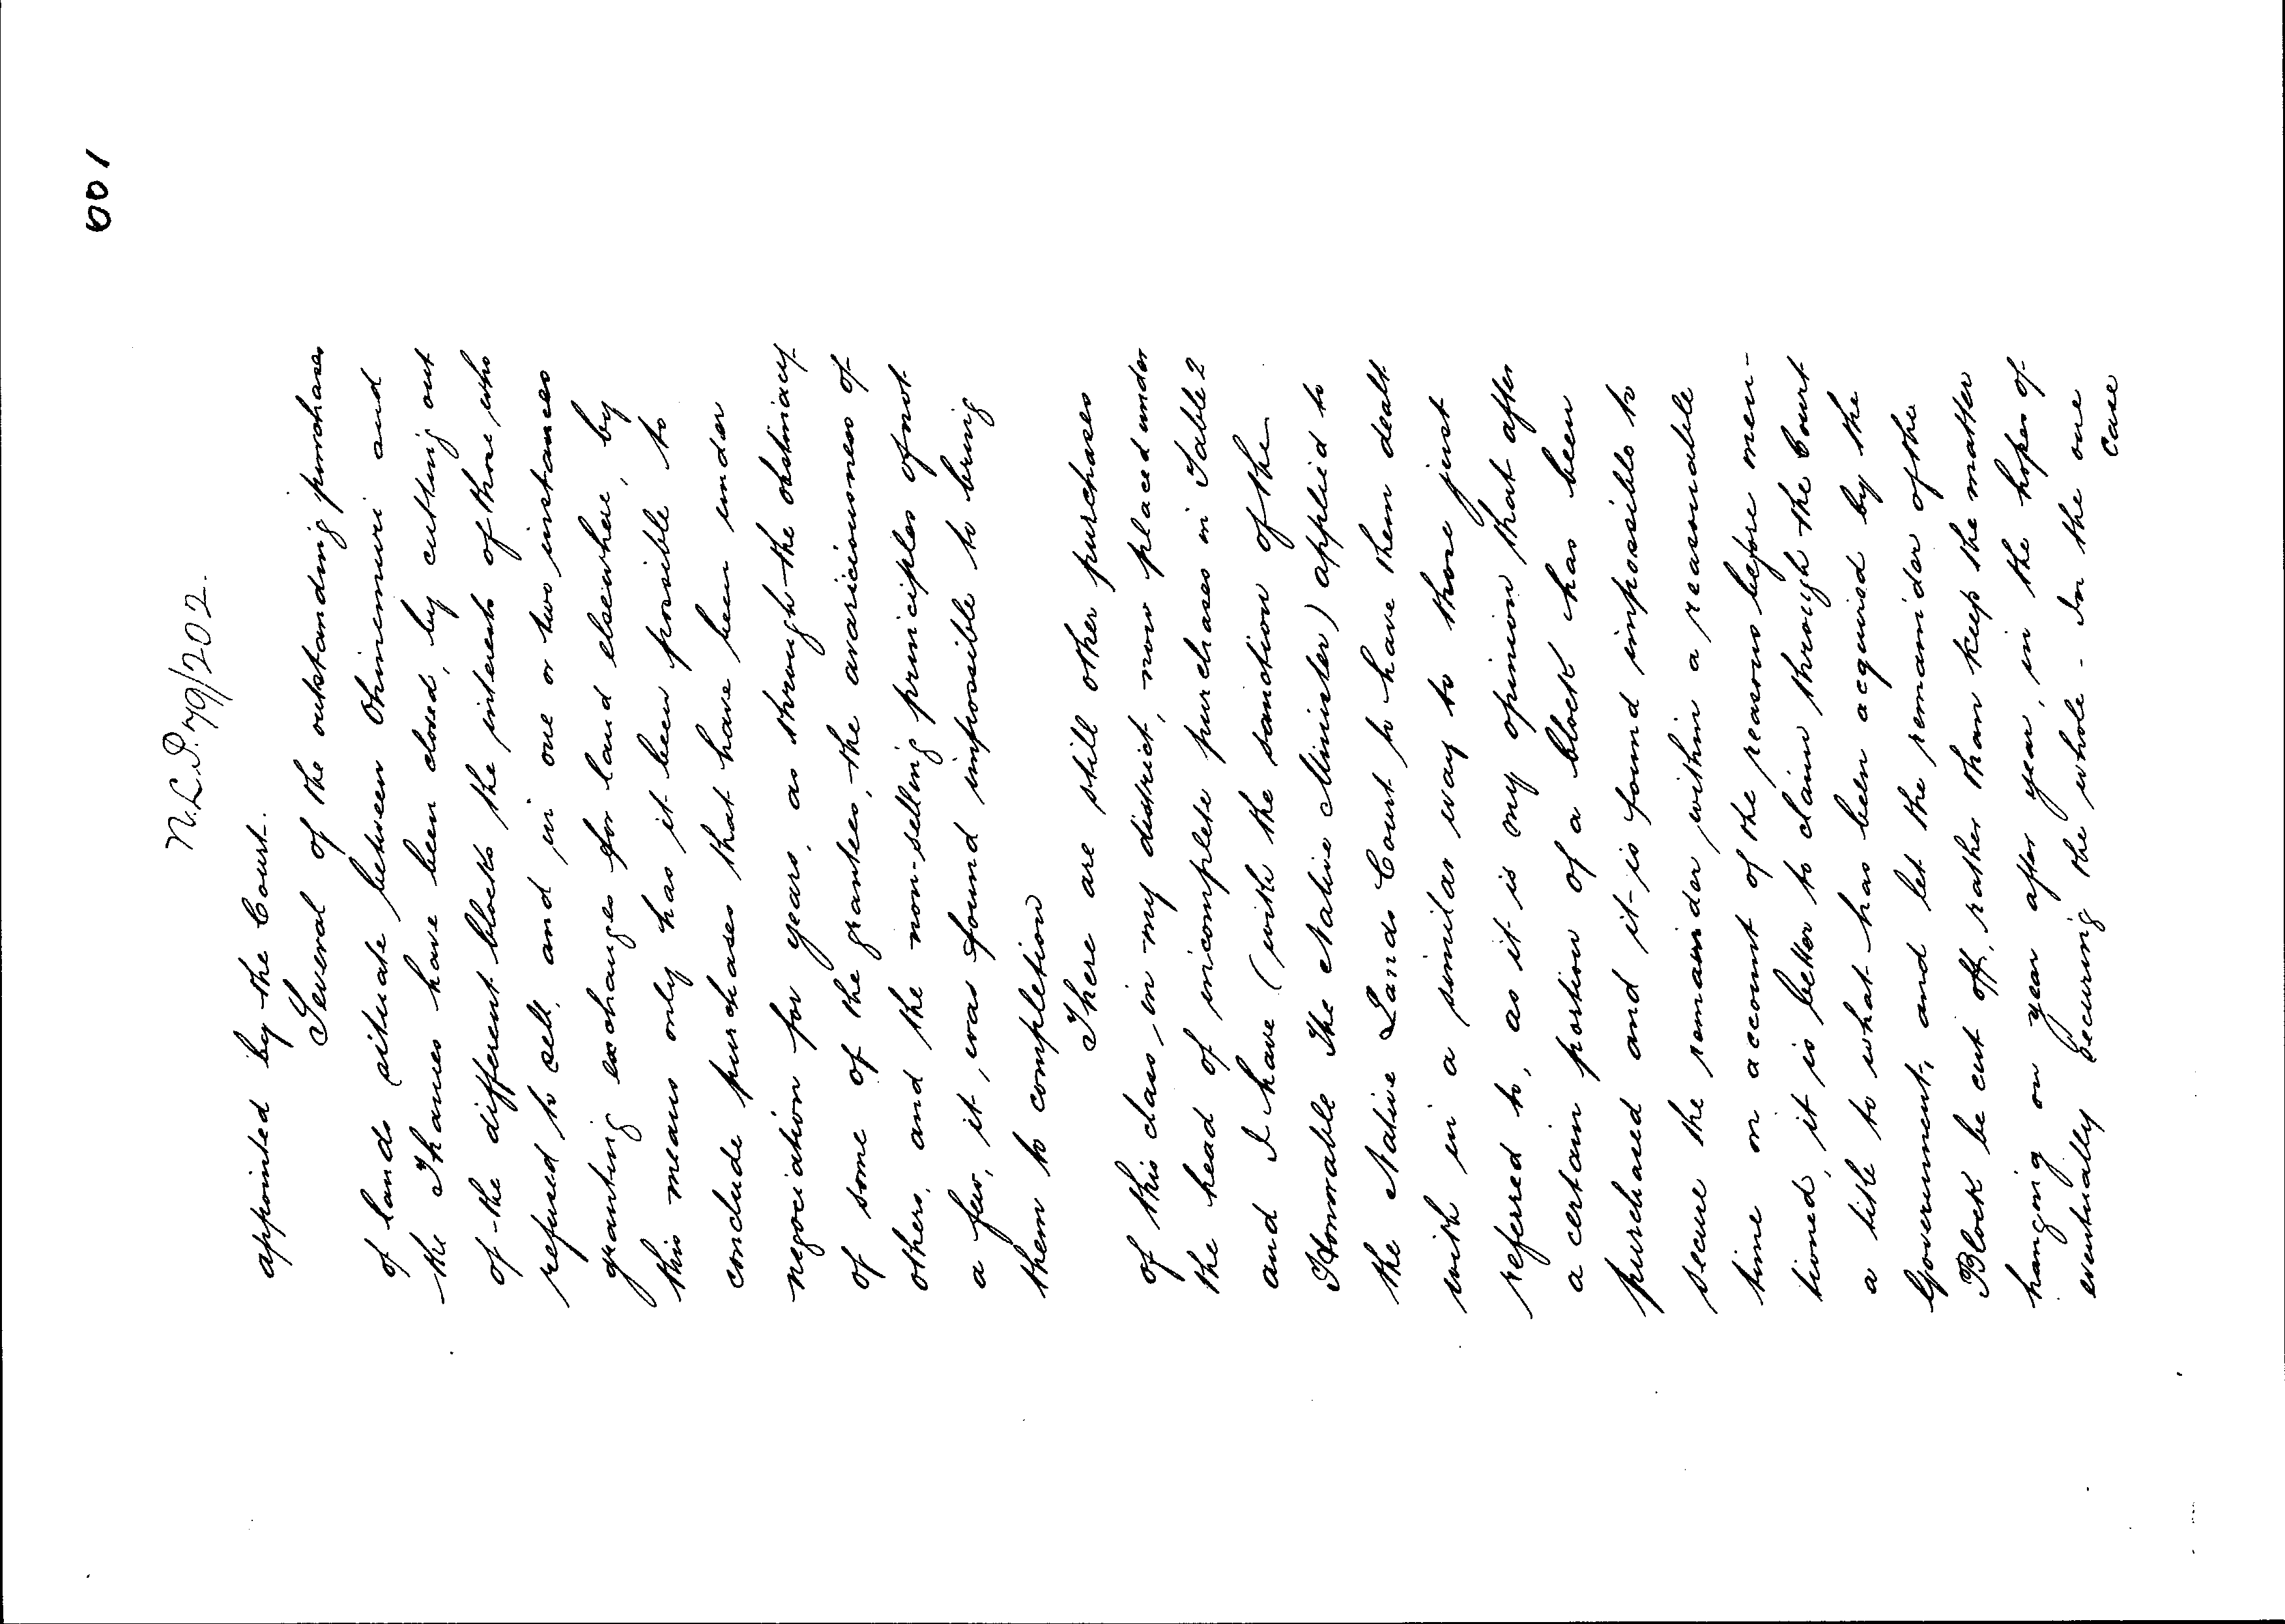 100
N.L.P. 79/202.
appointed by the Court.
Several of the outstanding purchases
of lands situate between Ohinemuri and
the Thames have been closed, by cutting out
of the different blocks the interests of those who
refused to sell, and in one or two instances
granting exchanges for land elsewhere, by
this means only has it been possible to
conclude purchases that have been under
negociation for years, as through the obstinacy
of some of the grantees, the avariciousness of
others, and the non-selling principles of not
a few, it, was found impossible to bring
them to completion
There are still other purchases
of this class, in my district, now placed under
the head of incomplete purchases in Table 2
and I have (with the sanction of the
Honorable the Native Minister) applied to
the Native Lands Court to have them dealt
with in a similar way to those just
referred to, as it is my opinion that after
a certain portion of a block has been
purchased and it is found impossible to
secure the remainder within a reasonable
time on account of the reasons before men-
tioned, it is better to claim through the Court
a title to what has been acquired by the
Government, and let the remainder of the
Block be cut off, rather than keep the matter
hanging on year after year, in the hopes of
eventually securing the whole - In the one
case